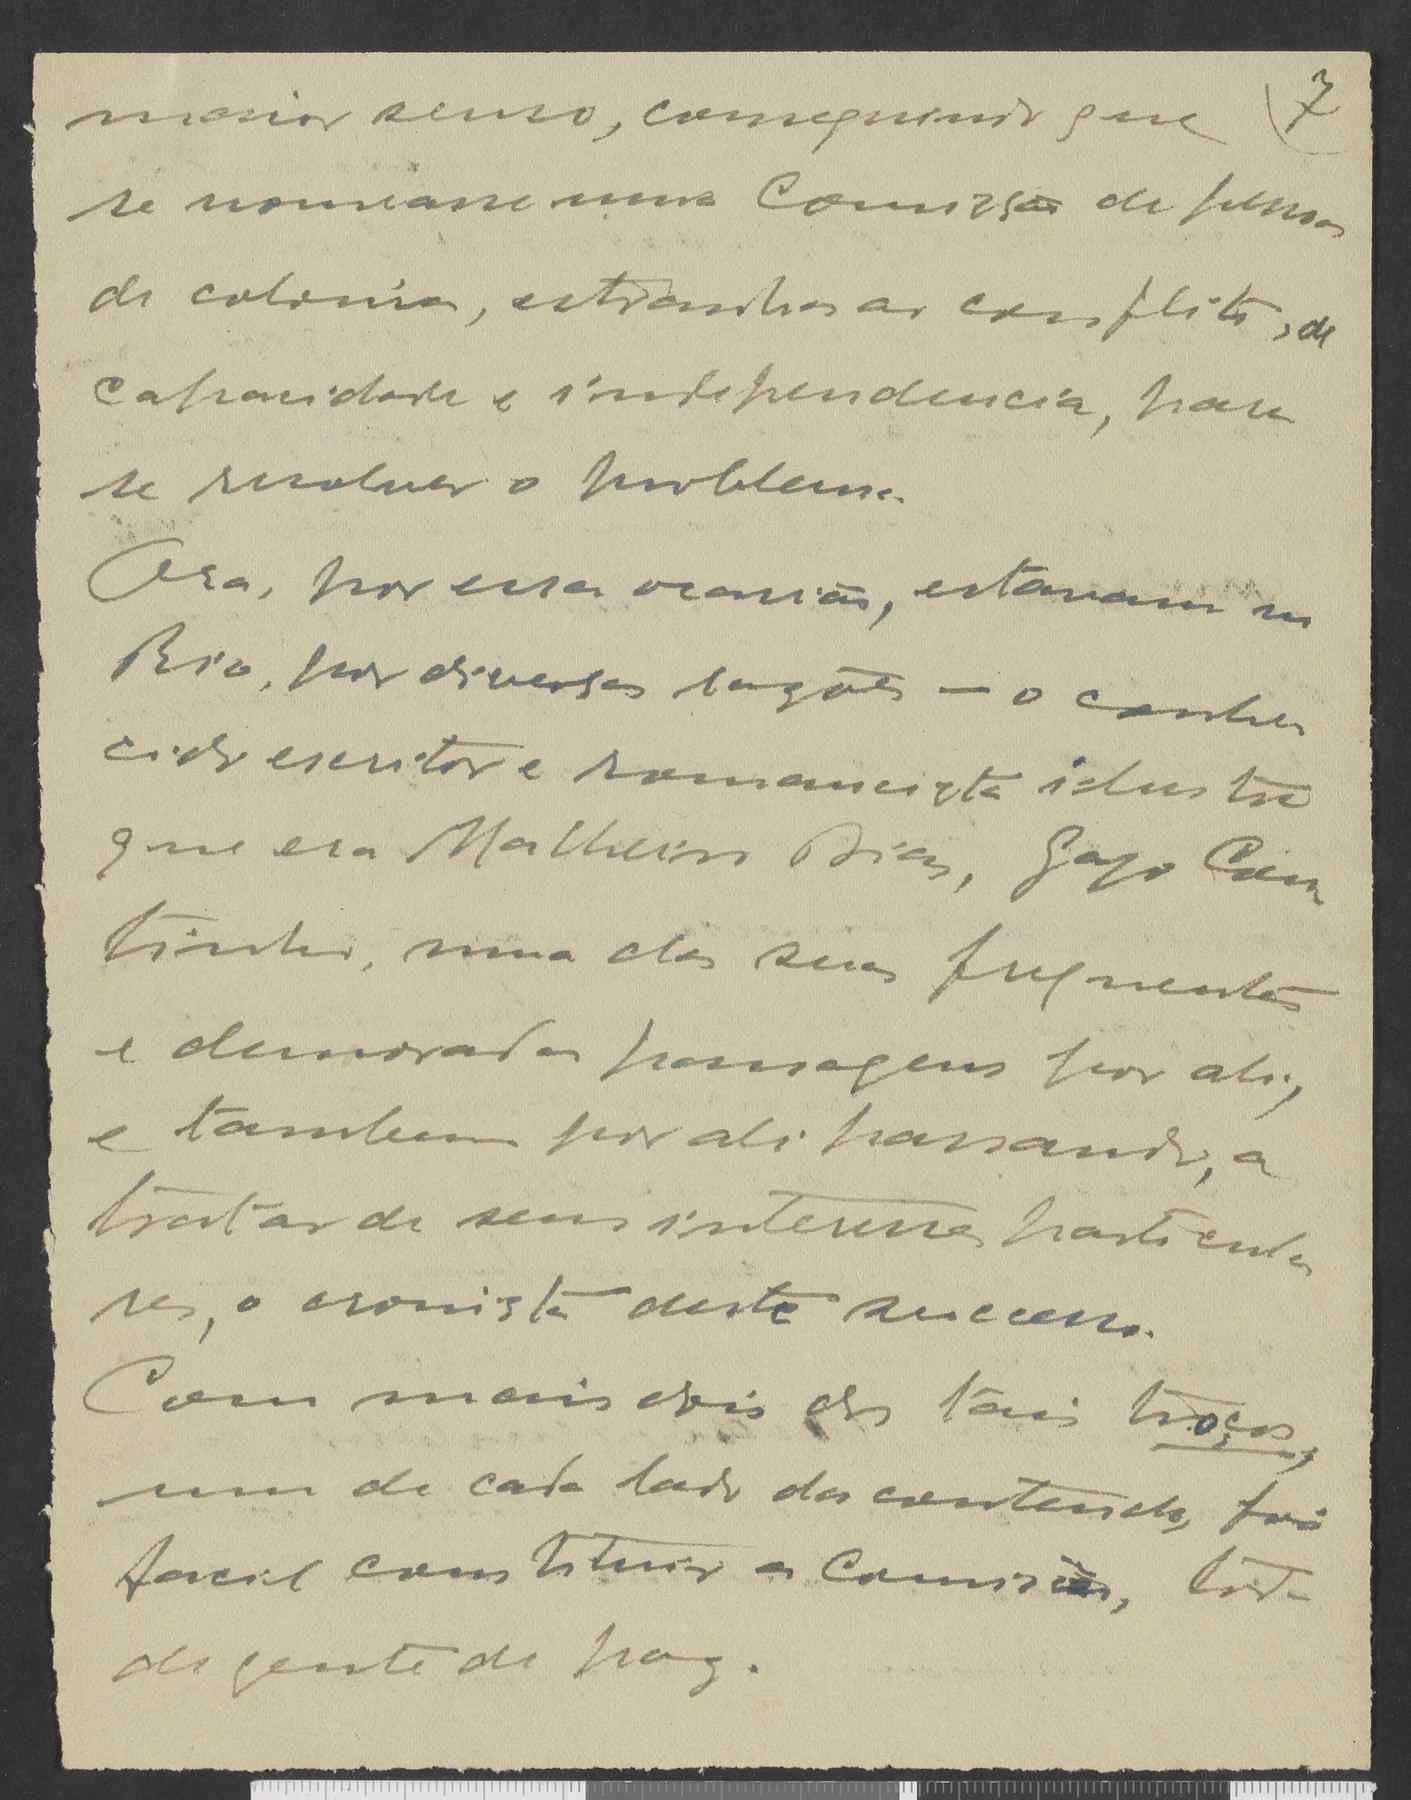 7
maior senso, conseguindo que
se nomeasse uma Comissão de pessoas
da colonia, estranhas ao conflito, de
capacidade e independencia, para
se resolver o problema.
Ora, por essa ocasião, estavam no
Rio, por diversas razões — o conhe
cido escritor e romancista ilustre
que era Malheiro Dias, Gago Cou
tinho, numa das suas frequentes
e demoradas passagens por ali,
e tambem por ali passando, a
tratar de seus interesses particula
res, o cronista deste successo.
Com mais dois dos tais troços,
um de cada lado da contenda, foi
facil constituir a Comissão, toda
de gente de paz.